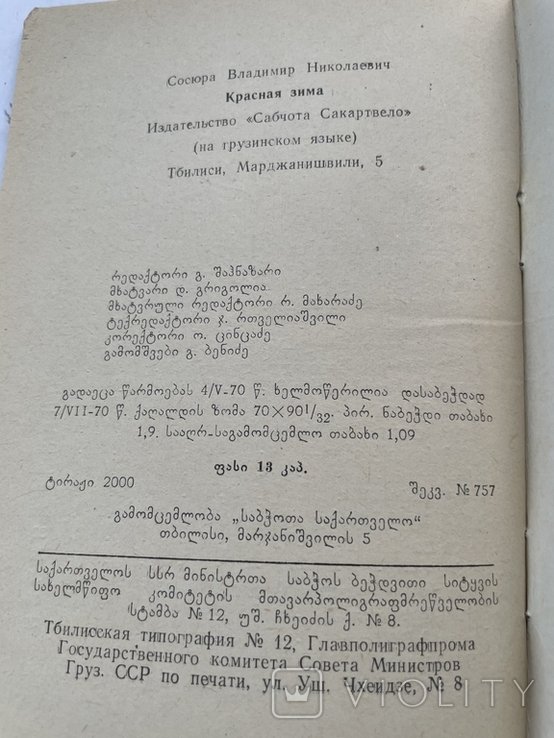 Сосюра Владимир Николаевич
Красная зима
Издательство «Сабчота Сакартвело»
(на грузинском языке)
Тбилиси, Марджанишвили, 5
რედაქტორი გ. შაჰნაზარი
მხატვარი დ. გრიგოლია
მხატვრული რედაქტორი რ. მახარაძე
ტექრედაქტორი ჯ. რთველიაშვილი
კორექტორი ო. ცინცაძე
გამომშვები გ. ბენიძე
გადაეცა წარმოებას 4/V-70 წ. ხელმოწერილია დასაბეჭდად
7/VII-70 წ. ქაღალდის ზომა 70×90¹/₃₂. პირ. ნაბეჭდი თაბახი
1,9. სააღრ-საგამომცემლო თაბახი 1,09
ფასი 13 კაპ.
ტირაჟი 2000 შეკვ. № 757
გამომცემლობა „საბჭოთა საქართველო“
თბილისი, მარჯანიშვილის 5
საქართველოს სსრ მინისტრთა საბჭოს ბეჭდვითი სიტყვის
სახელმწიფო კომიტეტის მთავარპოლიგრაფმრეწველობის
სტამბა № 12, უშ. ჩხეიძის ქ. № 8.
Тбилисская типография № 12, Главполиграфпрома
Государственного комитета Совета Министров
Груз. ССР по печати, ул. Уш. Чхеидзе, № 8
VIOLITY